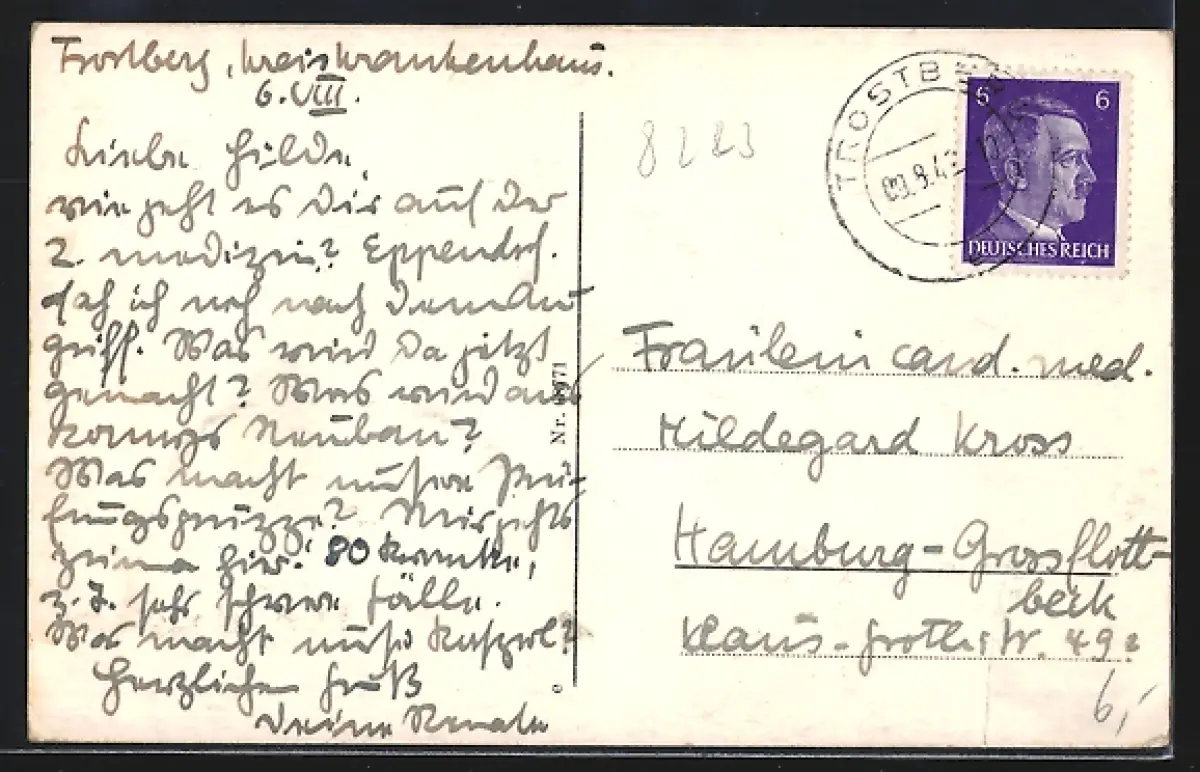 Trostberg, Kreiskrankenhaus.
6. VIII.
Liebe Hilde,
wie geht es Dir auf der
2. medizin? Eppendorf.
sah ich noch nach dem An-
griff. Was wird da jetzt
gemacht? Was wird aus
Neubau?
Was macht unsere Prü-
fungs Mir gehts
prima hier! 80 Kranke,
z. T. sehr schwere Fälle.
Was macht unser Kasperl?
Herzlichen Gruß
Deine Renate
Nr.
8223
TROSTBE
9.8.43
6 6
DEUTSCHES REICH
Fräulein cand. med.
Hildegard Kross
Hamburg-Grossflott-
bek
Klaus-Groth-Str. 49a
6,-